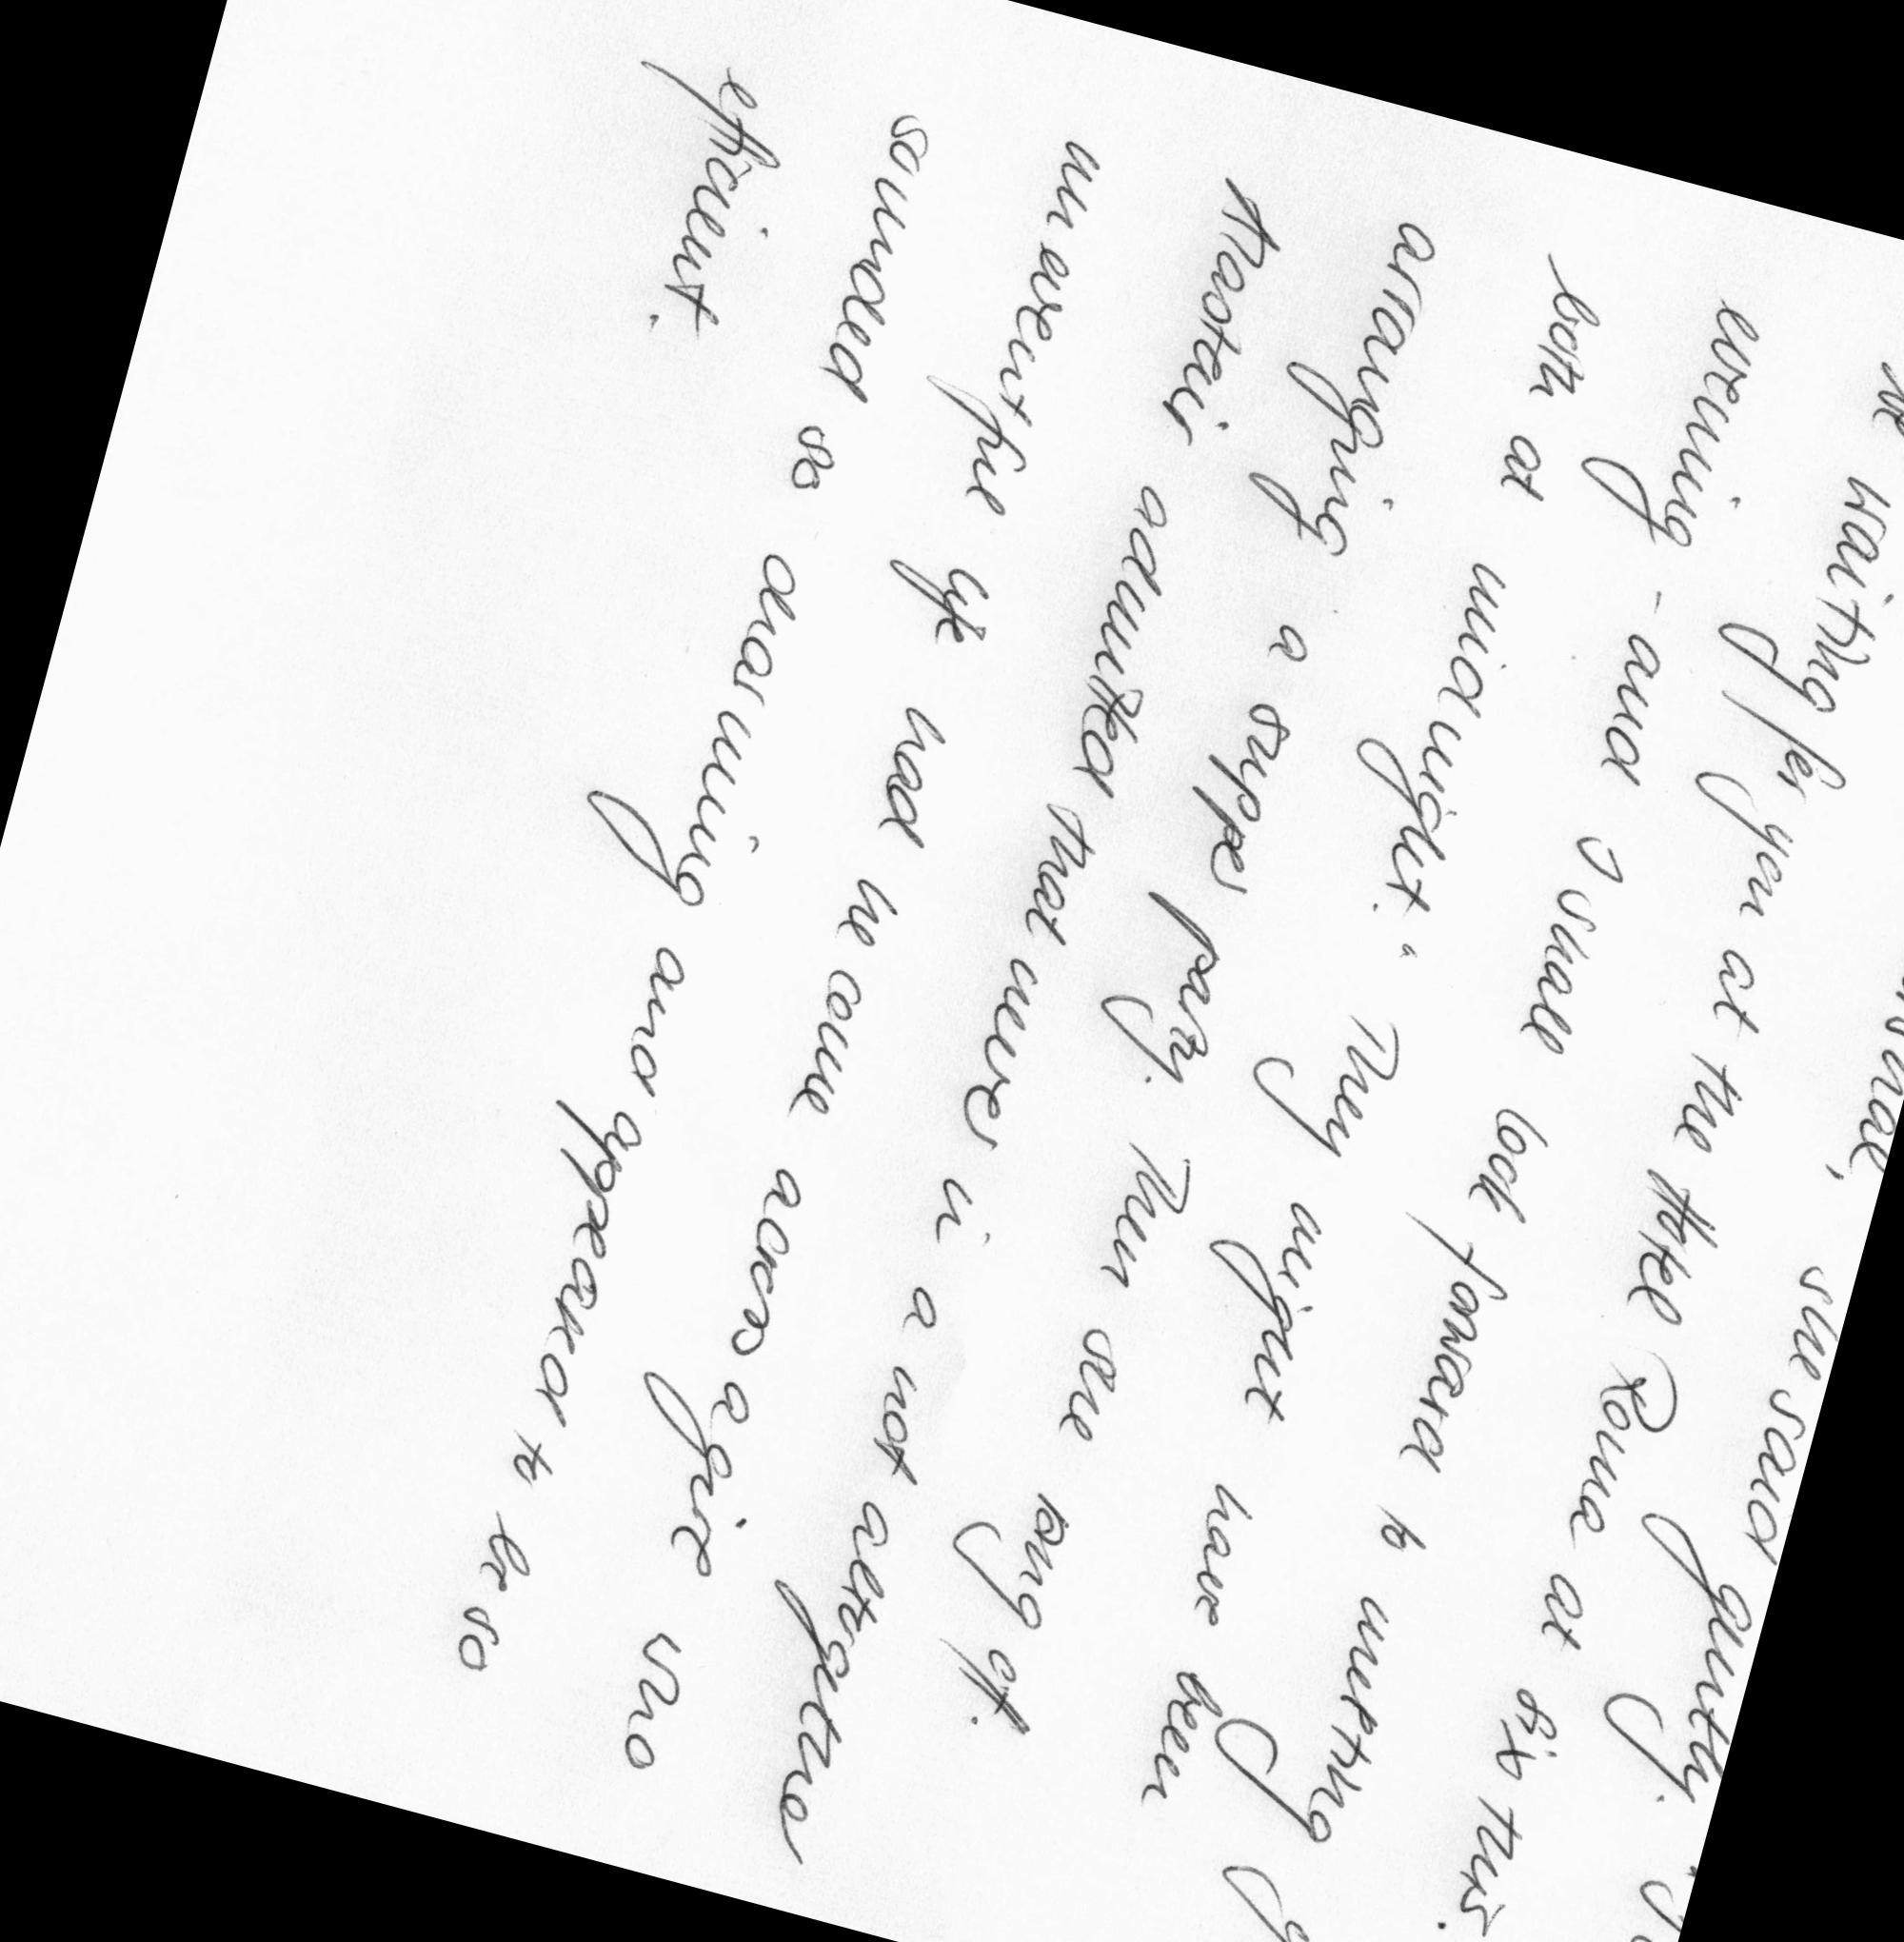 she said gently. "
be waiting for you at the Hotel Roma at six this
evening - and I shall look forward to meeting
both at midnight." They might have been
arranging a supper party. Then she rang off.
Hastein admitted that never in a not altogether
uneventful life had he come across a girl who
sounded so charming and appeared to be so
efficient.